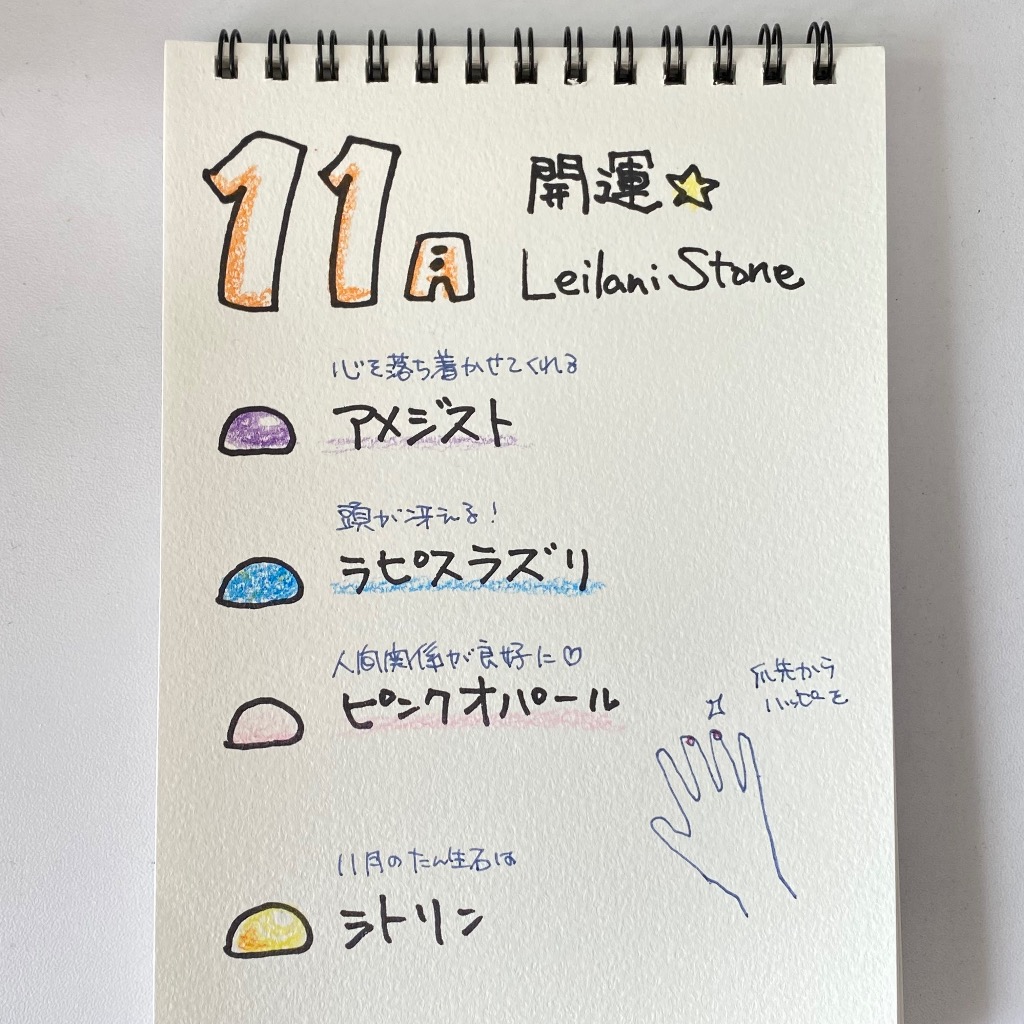 11月 開運☆
Leilani Stone
心を落ち着かせてくれる
アメジスト
頭が冴える!
ラピスラズリ
人間関係が良好に♡
ピンクオパール
爪先から
ハッピーを
11月のたん生石は
シトリン